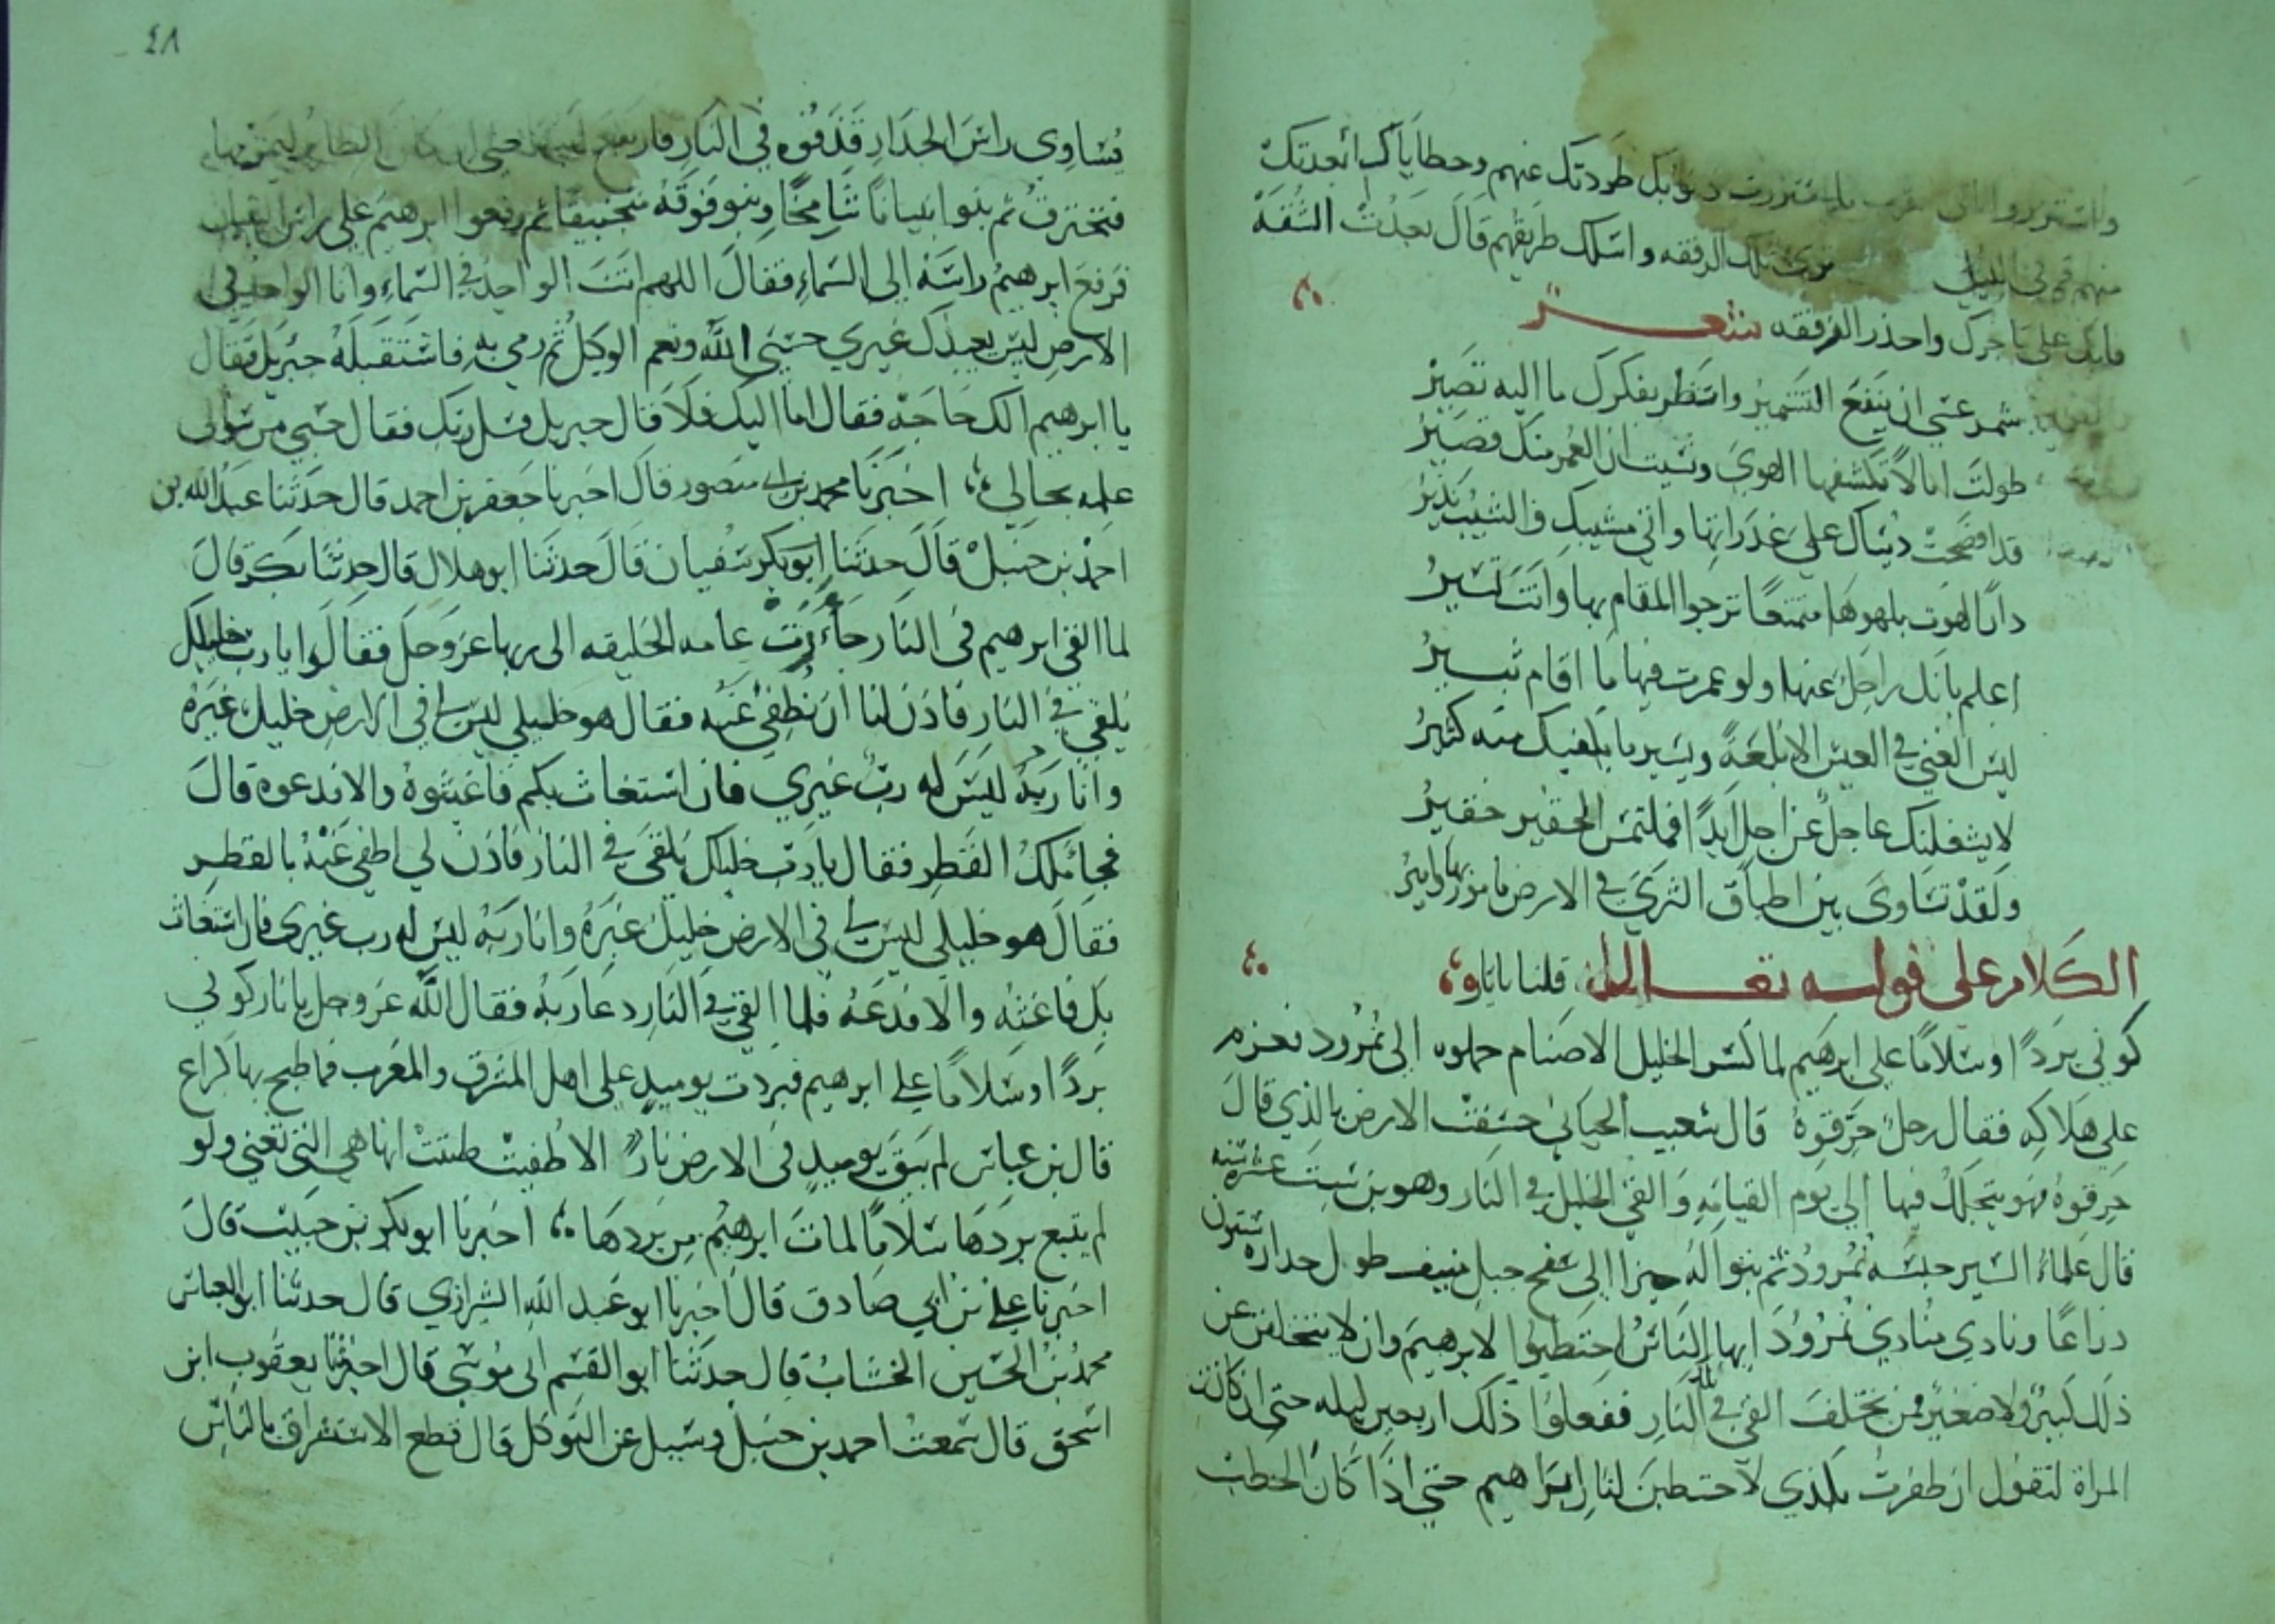 ذنوبك طردتك عنهم وخطاياك ابعدتك
منهم قم في الليل تلك الرفقه واسلك طريقهم قال بعدت الشقة
فابك على تاخرك واحذر الفرققه شعر
شمر عسى ان ينفع التشمير وانتظر بفكرك ما اليه تصير
طولت امالا تكنفها الهوى ونسيت ان العمر منك قصير
قد افصحت دنياك على غدراتها واتى مشيبك والمشيب نذير
دارا لهوت بلهوها متمتعا ترجوا المقام بها وانت تسير
اعلم بانك راحل عنها ولو عمرت فيها ما اقام ثبير
ليس الغنى في العيش الا بلغة ويسير ما يكفيك منه كثير
لا يشغلنك عاجل عن اجل ابدا فملتمس الحقير حقير
ولقد تساوى بين اطباق الثرى في الارض مامورها وامير
الكلام على قوله تعالى قلنا يانار
كوني بردا وسلاما على ابرهيم لما كسر الخليل الاصنام حملوه الى نمرود فعزم
على هلاكه فقال رجل حرقوه قال شعيب الجبائي خسفت الارض بالذي قال
حرقوه فهو يتجلجل فيها الى يوم القيامه والقي الخليل في النار وهو بن ست عشره سنه
قال علماء السير حبسه نمرود ثم بنوا له حيرا الى سفح جبل منيف طول جداره ستون
ذراعا ونادى منادي نمرود ايها الناس احتطبوا لابرهيم وان لا يتخلفن عن
ذلك كبير ولا صغير فمن تخلف القي في تلك النار ففعلوا ذلك اربعين ليله حتى ان كانت
المراة لتقول ان ظفرت بكذي لاحتطبن لنار ابراهيم حتى اذا كان الحطب
٤٨
يساوي راس الجدار قذفوه في النار فارتفع لهبها حتى ان كان الطائر ليمر بها
فتحترق ثم بنوا بنيانا شامخا وبنو فوقه منجنيقا ثم رفعوا ابرهيم على راس البنيان
فرفع ابرهيم راسه الى السماء فقال اللهم انت الواحد في السماء وانا الواحد في
الارض ليس يعبدك غيري حسبي الله ونعم الوكيل ثم رمي به فاستقبله جبريل فقال
يا ابرهيم الك حاجه فقال اما اليك فلا قال جبريل فسل ربك فقال حسبي من سؤالي
علمه بحالي اخبرنا محمد بن ابي منصور قال اخبرنا جعفر بن احمد قال حدثنا عبد الله بن
احمد بن حنبل قال حدثنا ابو بكر سفيان قال حدثنا ابو هلال قال حدثنا بكر قال
لما القي ابرهيم في النار جأرت عامه الخليقه الى ربها عز وجل فقالوا يا رب خليلك
يلقى في النار فاذن لنا ان نطفي عنه فقال هو خليلي ليس لي في الارض خليل غيره
وانا ربه ليس له رب غيري فان استغاث بكم فاغيثوه والا فدعوه قال
فجا ملك القطر فقال يا رب خليلك يلقى في النار فاذن لي اطفي عنه بالقطر
فقال هو خليلي ليس لي في الارض خليل غيره وانا ربه ليس له رب غيري فان استغاث
بك فاغثه والا فدعه فلما القي في النار دعا ربه فقال الله عز وجل يا نار كوني
بردا وسلاما على ابرهيم فبردت يوميذ على اهل المشرق والمغرب فما طبخ بها كراع
قال بن عباس لم يبق يوميذ في الارض نار الا طفيت ظنت انها هي التي تعنى ولو
لم يتبع بردها سلاما لمات ابرهيم من بردها اخبرنا ابو بكر بن حبيب قال
اخبرنا علي بن ابي صادق قال اخبرنا ابو عبد الله الشرازي قال حدثنا ابو العباس
محمد بن الحسين الخشاب قال حدثنا ابو القسم ابي موسى قال اخبرنا يعقوب ابن
اسحق قال سمعت احمد بن حنبل وسيل عن التوكل قال قطع الاستشراف بالناس